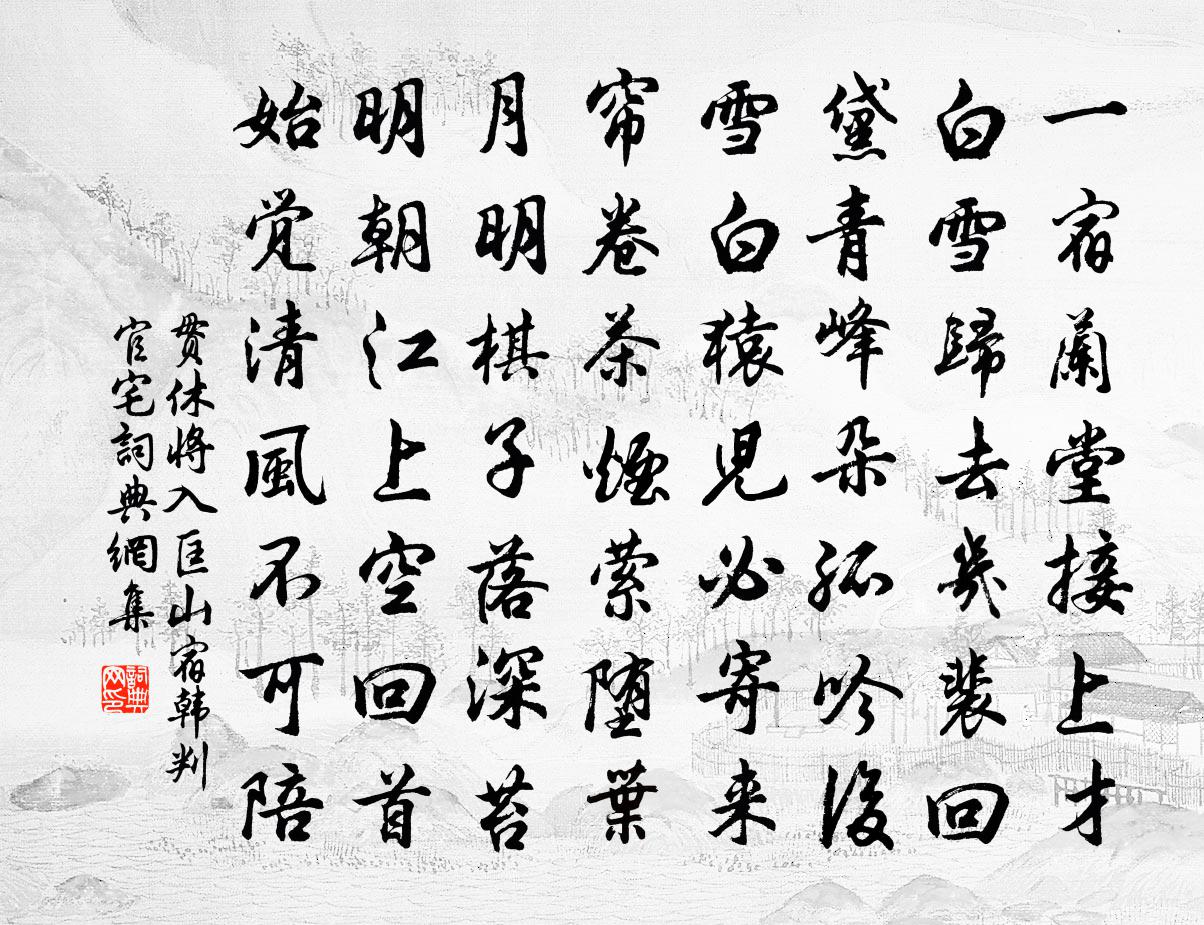 一宿蘭堂接上才
白雪歸去幾裴回
黛青峰朵孤吟後
雪白猿児必寄来
帘卷茶煙萦堕葉
月明棋子落深苔
明朝江上空回首
始覚清風不可陪
貫休將入匡山宿韩判
官宅詞典網集
詞典网印